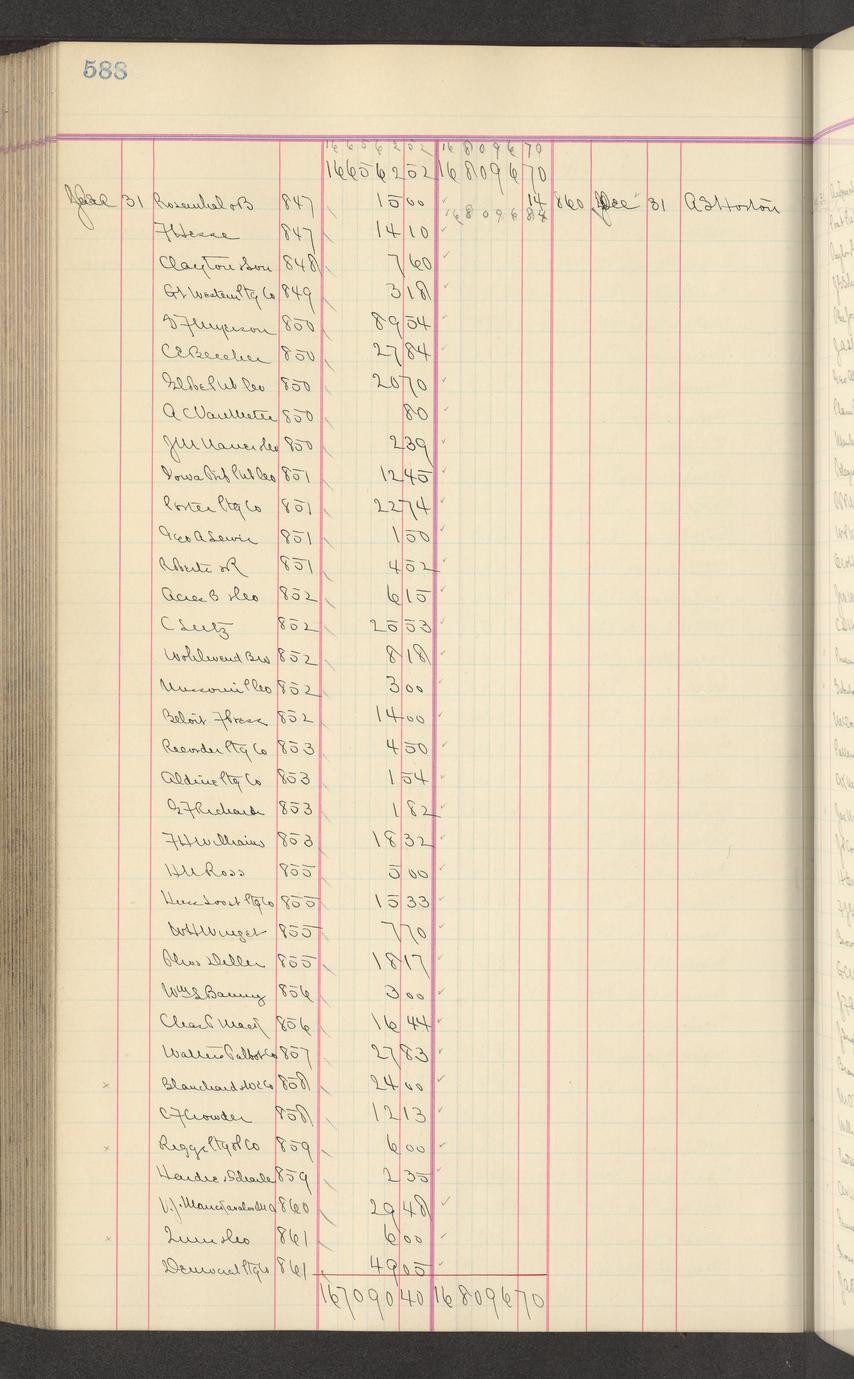 588
166562 52 168096 70
166562 52 168096 70
Dec 31 Rosenthal & B 847 15 00 14 860 Dec 31 A B Horton
F Hesse 847 14 10 168096 84
Clayton & Son 848 7 60
Gt Western Ptg Co 849 3 18
D F Myerson 850 89 54
C E Beecher 850 27 84
Globe Pub Co 850 20 70
A C Van Meter 850 80
J M Vance & Co 850 2 39
Iowa Ptg Pub Co 851 12 45
Porter Ptg Co 851 22 74
Geo A Lewis 851 1 50
Roberts & R 851 4 52
Acres B & Co 852 6 15
C Lutz 852 25 53
Wohlwend Bro 852 8 18
Missouri P Co 852 3 00
Beloit F Press 852 14 00
Recorder Ptg Co 853 4 50
Aldine Ptg Co 853 1 54
G F Richards 853 1 82
F H Williams 853 18 32
H M Ross 855 5 00
Ptg Co 855 15 33
W H Winget 855 7 70
Deller 855 18 17
Wm L Banny 856 3 00
Chas P Mack 856 16 44
Talbot Co 857 27 83
Blanchard & Co 858 24 00
C F Crowder 858 12 13
Riggs Ptg & P Co 859 6 00
859 2 35
V. J. 860 29 48
& Co 861 6 00
Ptg Co 861 49 05
167090 40 168096 70